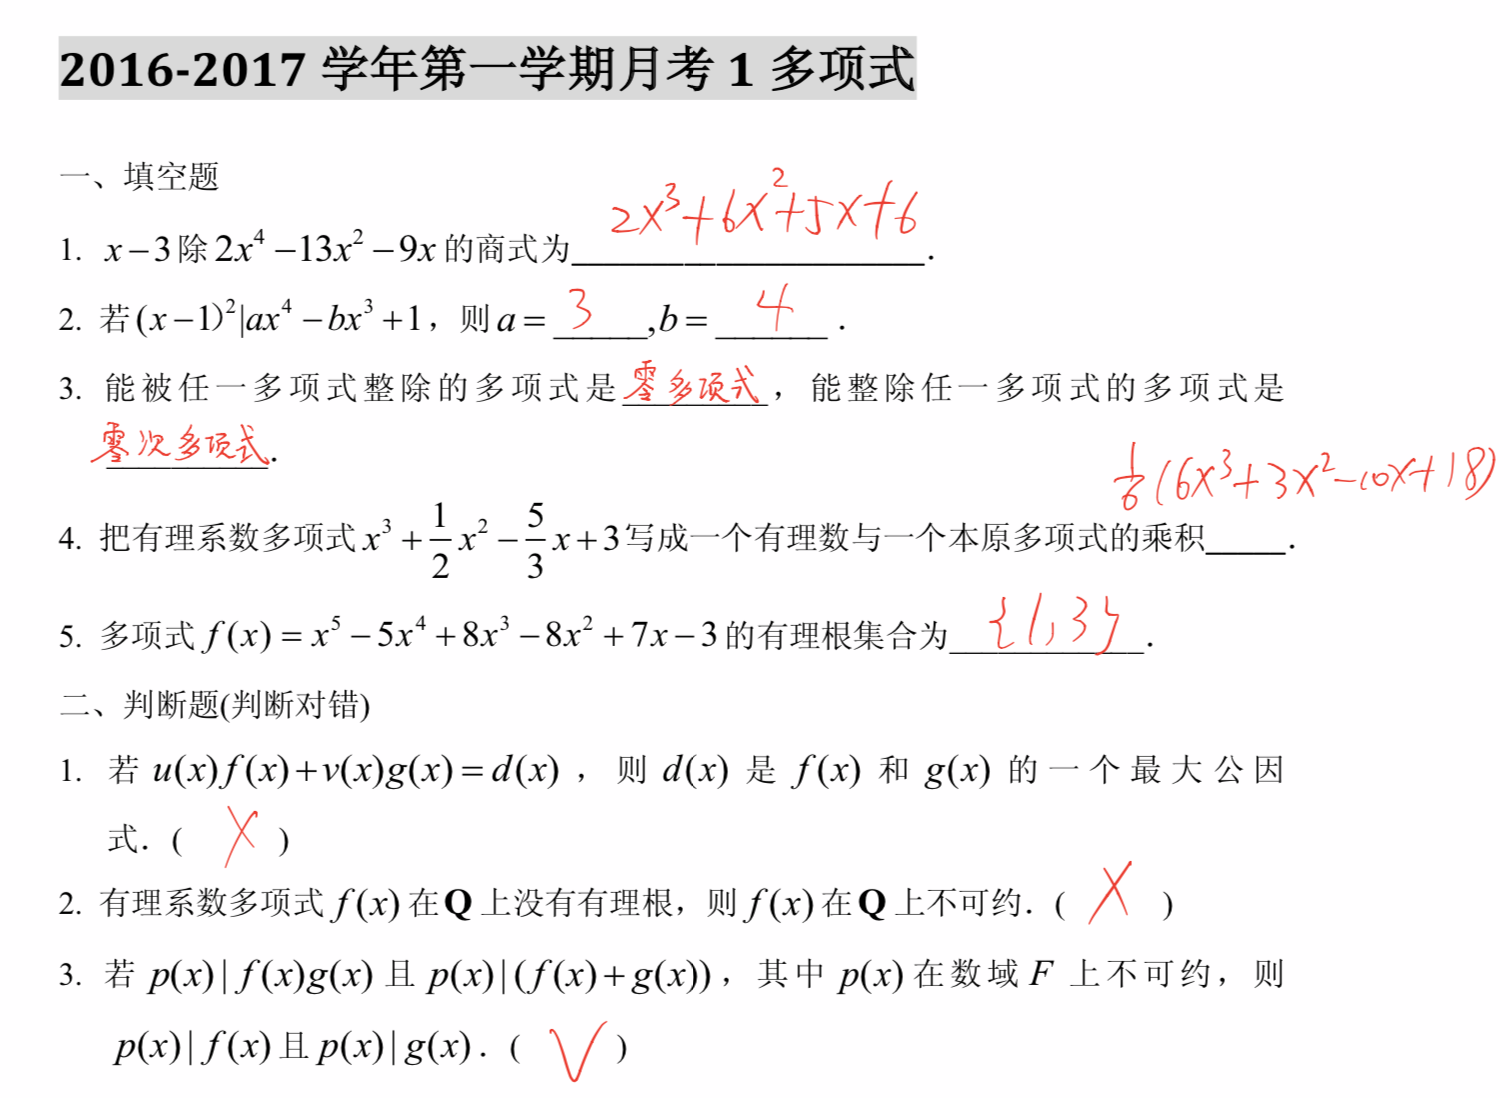 2016-2017 学年第一学期月考 1 多项式
一、填空题
1. x－3除2x⁴－13x²－9x的商式为 2x³+6x²+5x+6 .
2. 若(x－1)²|ax⁴－bx³+1，则a= 3 ,b= 4 .
3. 能被任一多项式整除的多项式是 零多项式 ，能整除任一多项式的多项式是
零次多项式 .
1/6 (6x³+3x²-10x+18)
4. 把有理系数多项式x³+1/2x²－5/3x+3写成一个有理数与一个本原多项式的乘积_____.
5. 多项式f(x)=x⁵－5x⁴+8x³－8x²+7x－3的有理根集合为 {1,3} .
二、判断题(判断对错)
1. 若u(x)f(x)+v(x)g(x)=d(x)，则d(x)是f(x)和g(x)的一个最大公因
式.( X )
2. 有理系数多项式f(x)在Q上没有有理根，则f(x)在Q上不可约.( X )
3. 若p(x)|f(x)g(x)且p(x)|(f(x)+g(x))，其中p(x)在数域F上不可约，则
p(x)|f(x)且p(x)|g(x).( √ )